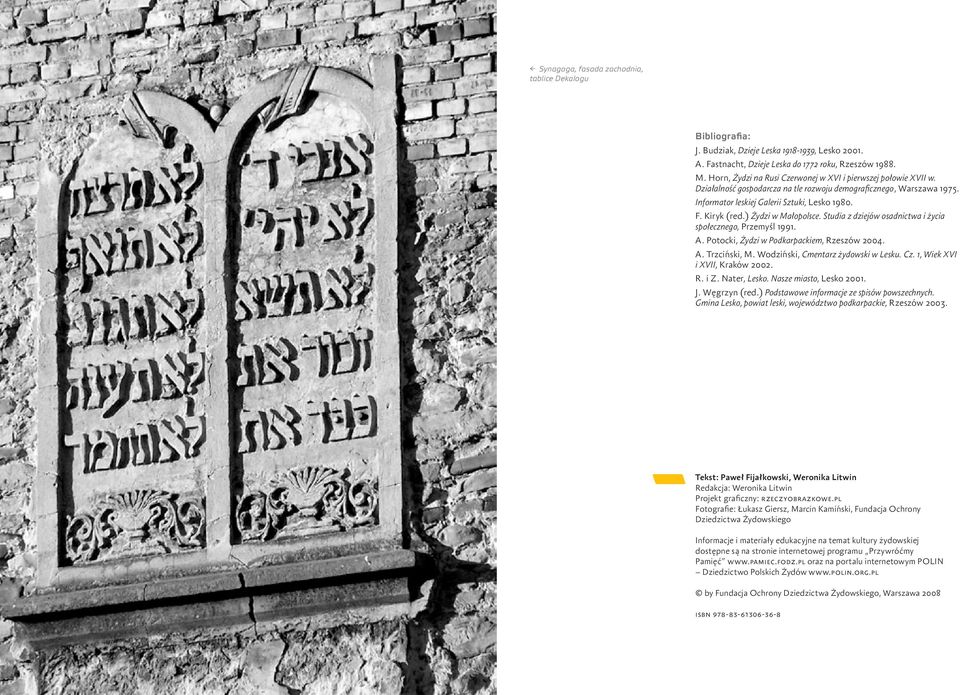 אנכי ד'
לא יהי'
לא תשא
זכור את
כבד את
לא תרצח
לא תנאף
לא
לא תענה
לא תחמד
← Synagoga, fasada zachodnia,
tablice Dekalogu
Bibliografia:
J. Budziak, Dzieje Leska 1918-1939, Lesko 2001.
A. Fastnacht, Dzieje Leska do 1772 roku, Rzeszów 1988.
M. Horn, Żydzi na Rusi Czerwonej w XVI i pierwszej połowie XVII w.
Działalność gospodarcza na tle rozwoju demograficznego, Warszawa 1975.
Informator leskiej Galerii Sztuki, Lesko 1980.
F. Kiryk (red.) Żydzi w Małopolsce. Studia z dziejów osadnictwa i życia
społecznego, Przemyśl 1991.
A. Potocki, Żydzi w Podkarpackiem, Rzeszów 2004.
A. Trzciński, M. Wodziński, Cmentarz żydowski w Lesku. Cz. 1, Wiek XVI
i XVII, Kraków 2002.
R. i Z. Nater, Lesko. Nasze miasto, Lesko 2001.
J. Węgrzyn (red.) Podstawowe informacje ze spisów powszechnych.
Gmina Lesko, powiat leski, województwo podkarpackie, Rzeszów 2003.
Tekst: Paweł Fijałkowski, Weronika Litwin
Redakcja: Weronika Litwin
Projekt graficzny: RZECZYOBRAZKOWE.PL
Fotografie: Łukasz Giersz, Marcin Kamiński, Fundacja Ochrony
Dziedzictwa Żydowskiego
Informacje i materiały edukacyjne na temat kultury żydowskiej
dostępne są na stronie internetowej programu „Przywróćmy
Pamięć” WWW.PAMIEC.FODZ.PL oraz na portalu internetowym POLIN
– Dziedzictwo Polskich Żydów WWW.POLIN.ORG.PL
© by Fundacja Ochrony Dziedzictwa Żydowskiego, Warszawa 2008
ISBN 978-83-61306-36-8